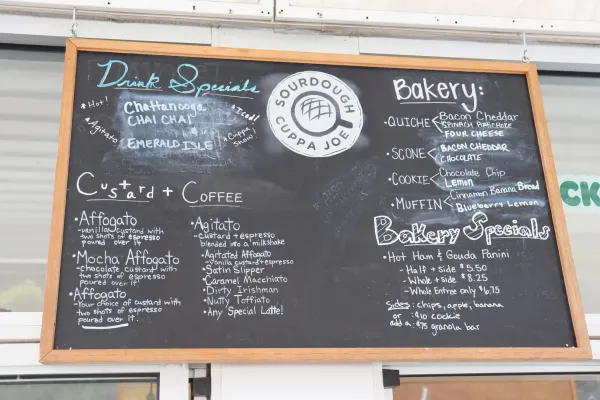 Drink Specials
*Hot!
Chattanooga
CHAI CHAI
*Iced!
*Agitato
EMERALD ISLE
*Cuppa
Shaw!
SOURDOUGH
CUPPA JOE
Custard + COFFEE
•Affogato
-vanilla custard with
two shots of espresso
poured over it
•Mocha Affogato
-chocolate custard with
two shots of espresso
poured over it
•Affogato
-Your choice of custard with
two shots of espresso
poured over it.
•Agitato
-custard + espresso
blended into a milkshake
-Agitated Affogato
-vanilla custard + espresso
-Satin Slipper
-Caramel Macchiato
-Dirty Irishman
-Nutty Toffiato
•Any Special Latte!
Bakery:
•QUICHE
Bacon Cheddar
SPINACH ARTICHOKE
FOUR CHEESE
•SCONE
BACON CHEDDAR
CHOCOLATE
•COOKIE
Chocolate Chip
Lemon
•MUFFIN
Cinnamon Banana Bread
Blueberry Lemon
Bakery Specials
•Hot Ham & Gouda Panini
-Half + side $5.50
-Whole + side $8.25
-Whole Entree only $6.75
Sides: chips, apple, banana
or cookie
add a granola bar
CK